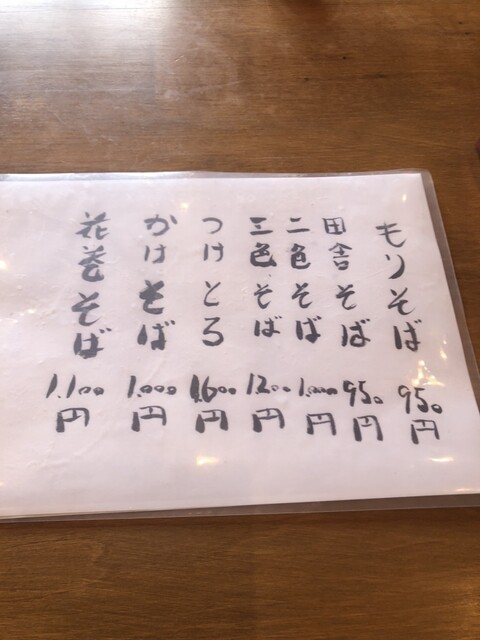 もりそば 950円
田舎そば 950円
二色そば 1.000円
三色そば 1.200円
つけとろ 1.600円
かけそば 1.000円
花巻そば 1.100円